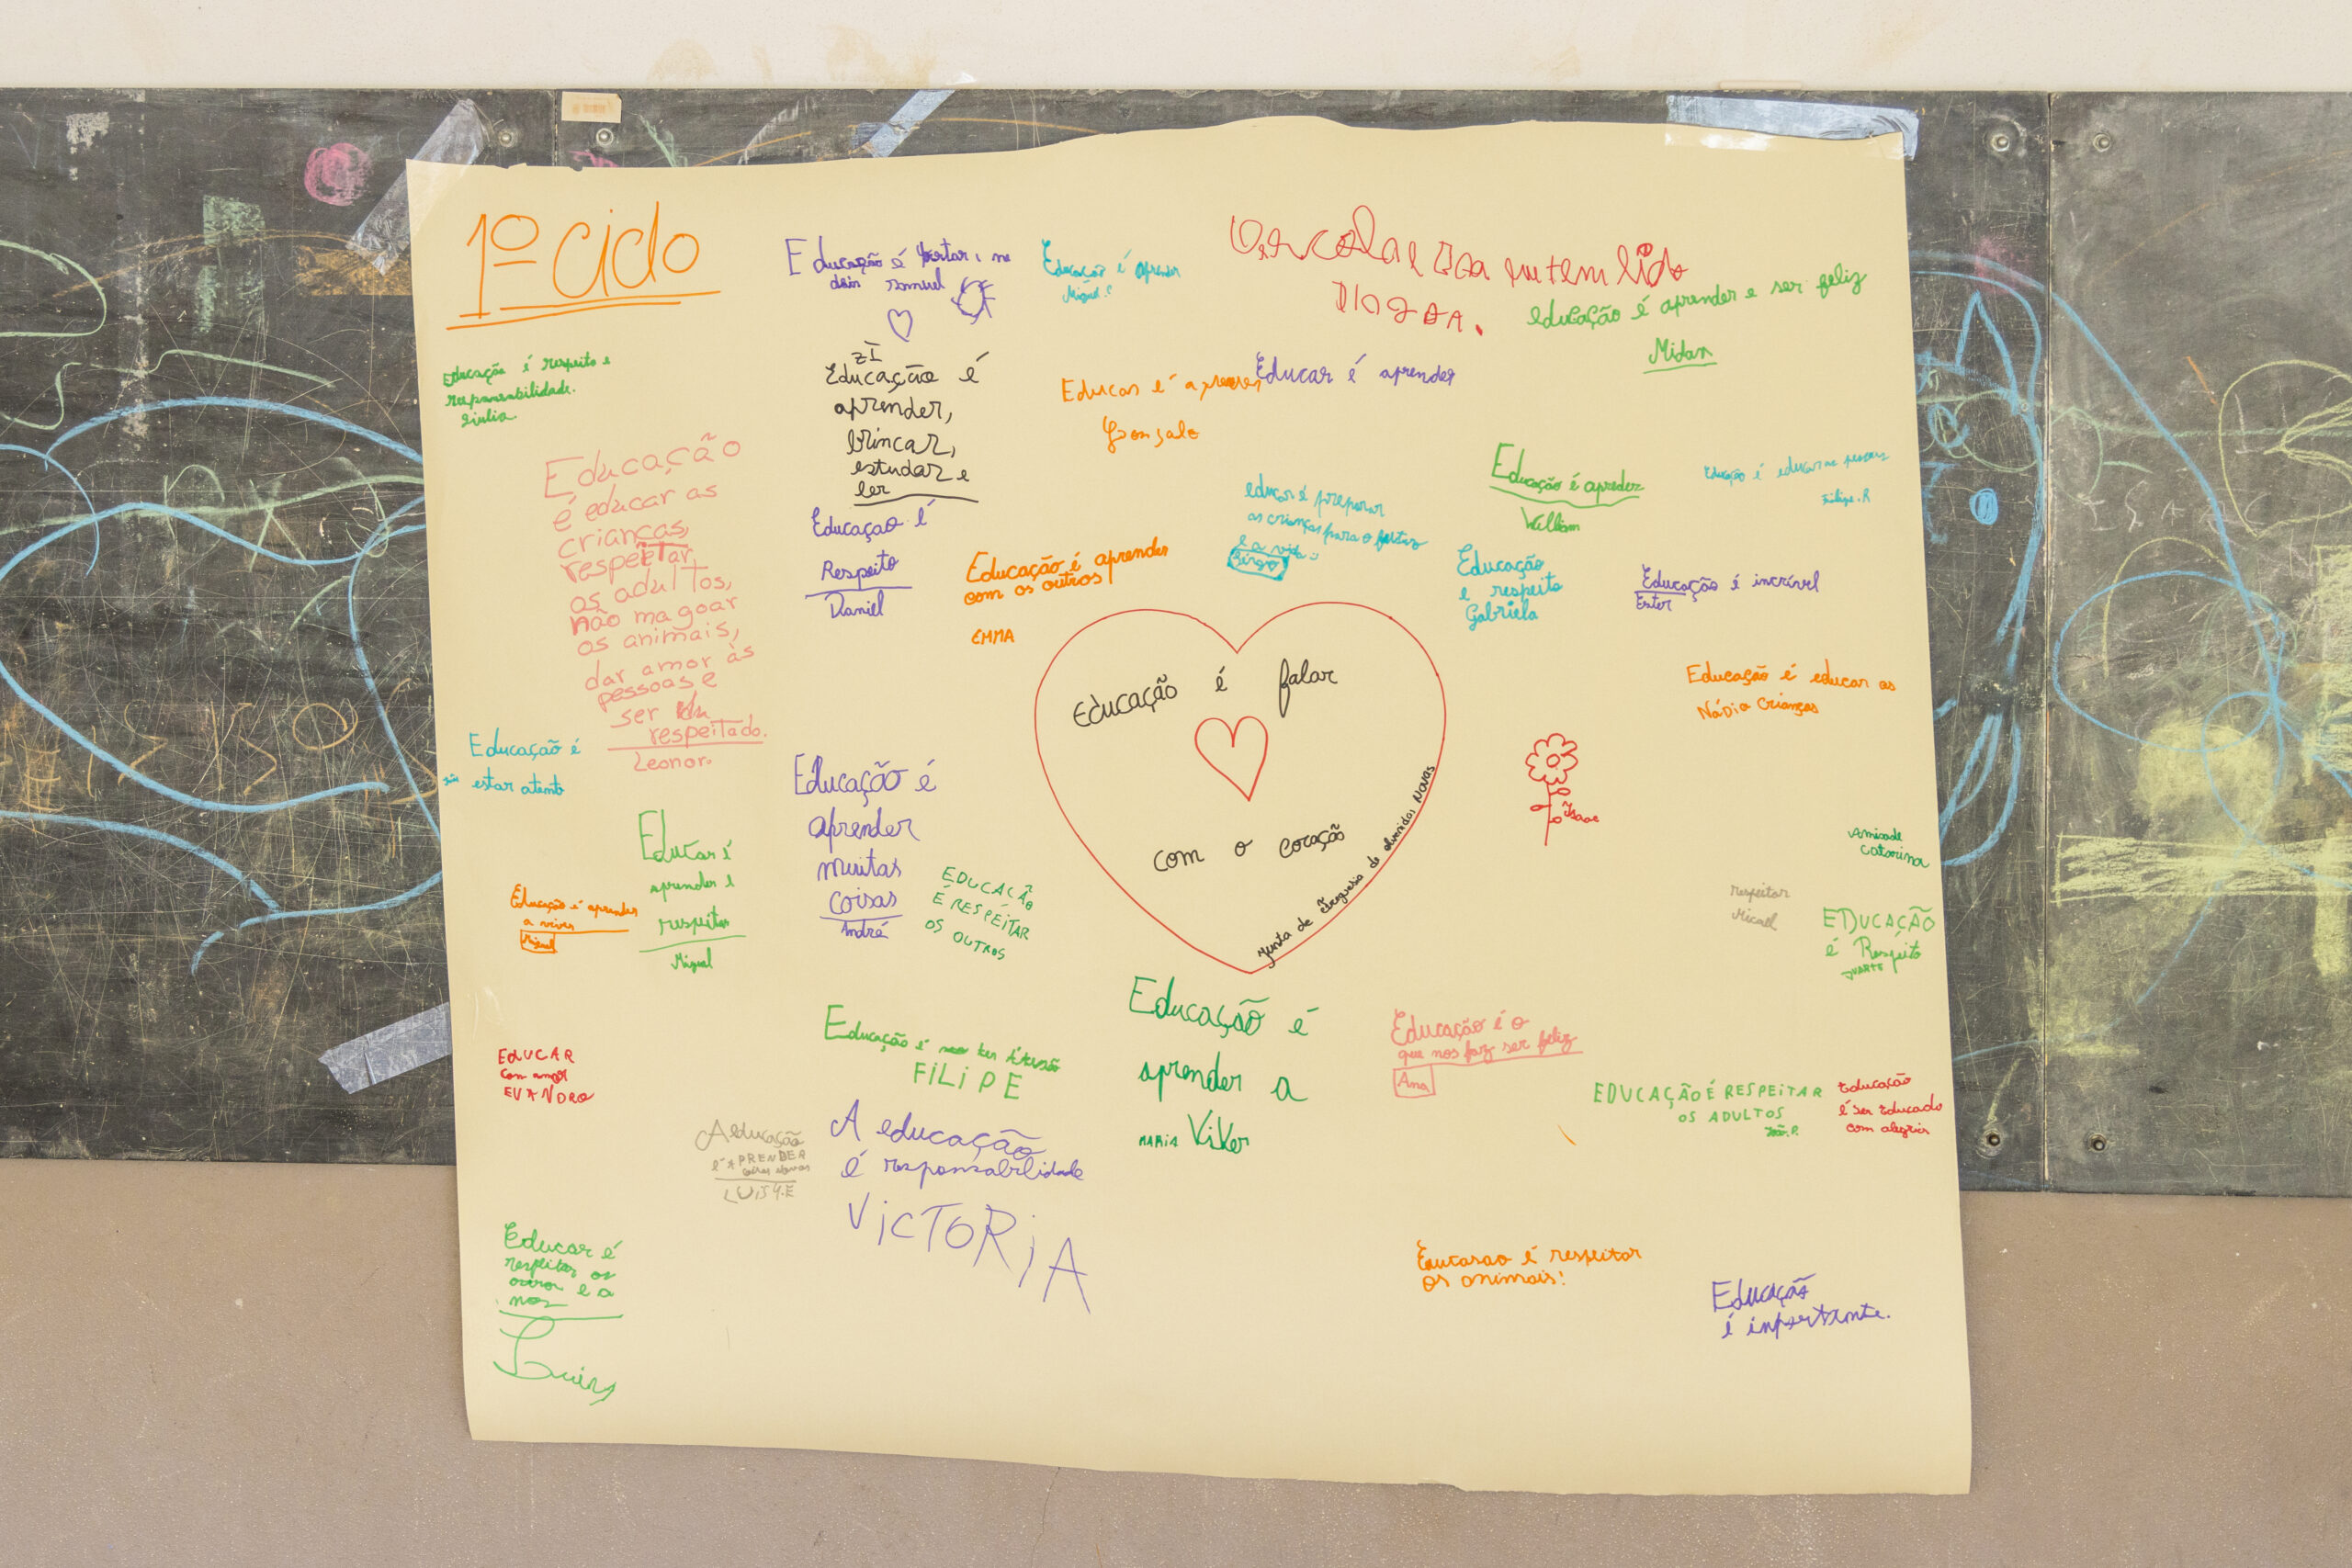 1º ciclo
Educação é
Educação é aprender
Miguel.
Educação é aprender e ser feliz
Midan
Educação é respeito e
responsabilidade.
Giulia.
zI
Educação é
aprender,
brincar,
estudar e
ler
Educar é aprender
Gonçalo
Educação
é educar as
crianças,
respeitar
os adultos,
não magoar
os animais,
dar amor às
pessoas e
ser
respeitado.
Leonor.
Educaçao é
Respeito
Daniel
Educação é aprender
com os outros
EMMA
educar é preparar
as crianças para o
e a vida :)
Educação é apreder
William
Educação é educar as pessoas
Filipe.R
Educação
e respeito
Gabriela
Educação é incrível
Ester
Educação é educar as
Nádia crianças
Educação é falar
com o coração
Junta de Freguesia de Novas
Isaac
Educação é
estar atento
Educar é
aprender e
respeitar
Miguel
Educação é aprender
a viver
Miguel
Educação é
aprender
muitas
coisas
André
EDUCAÇÃO
É RESPEITAR
OS OUTROS
Amizade
Catarina
respeitar
Micael
EDUCAÇÃO
é Respeito
DUARTE
EDUCAR
com amor
EVANDRO
Educação é não ter
FILIPE
Educação é
aprender a
MARIA Viver
Educação é o
que nos faz ser feliz
Ana
EDUCAÇÃO É RESPEITAR
OS ADULTOS
João.P.
Educação
é ser Educado
com alegria
A educação
é APRENDER
coisas novas
A educação
é responsabilidade
VICTORIA
Educar é
respeitar os
outros e a
nos
Eucasao é respeitar
os animais!
Educação
é inportante.